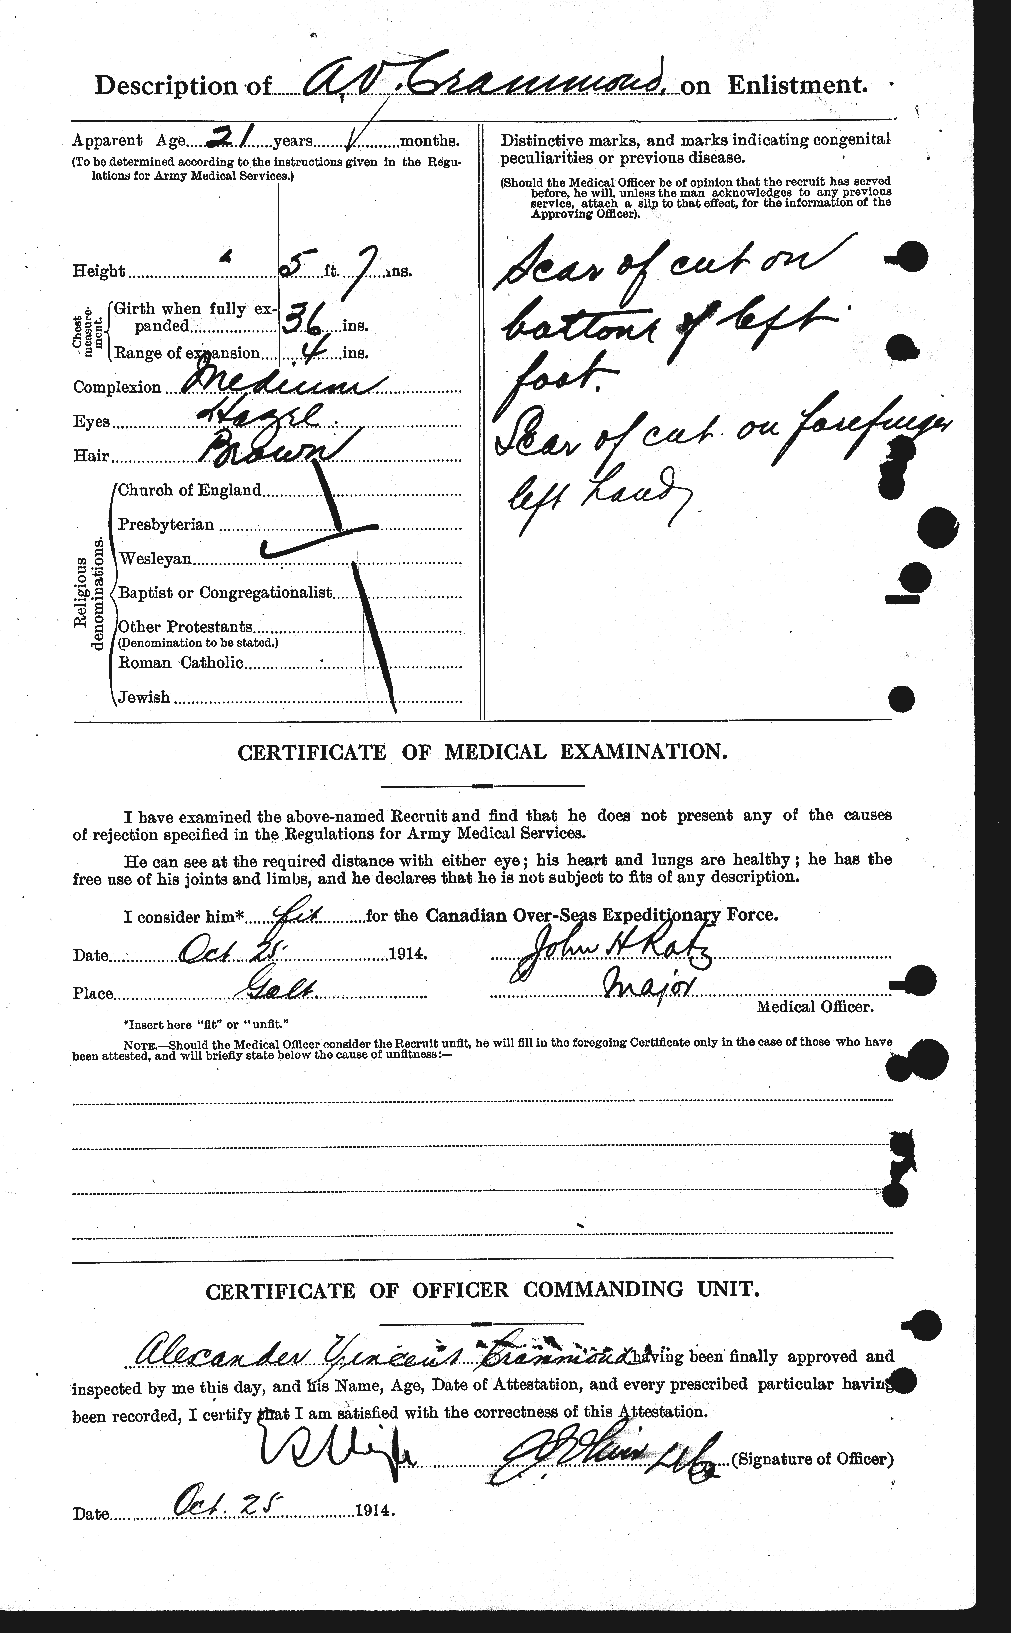 Description of A.V. Crammond. on Enlistment.
Apparent Age 21 years months.
(To be determined according to the instructions given in the Regu-
lations for Army Medical Services.)
Height 5 ft. 7 ins.
Chest measure-ment.
Girth when fully ex-
panded 36 ins.
Range of expansion 4 ins.
Complexion Medium
Eyes Hazel
Hair Brown
Religious denominations.
Church of England
Presbyterian
Wesleyan
Baptist or Congregationalist
Other Protestants
(Denomination to be stated.)
Roman Catholic
Jewish
Distinctive marks, and marks indicating congenital
peculiarities or previous disease.
(Should the Medical Officer be of opinion that the recruit has served
before, he will, unless the man acknowledges to any previous
service, attach a slip to that effect, for the information of the
Approving Officer).
Scar of cut on
bottome of left
foot.
Scar of cut on forefinger
left hand
CERTIFICATE OF MEDICAL EXAMINATION.
I have examined the above-named Recruit and find that he does not present any of the causes
of rejection specified in the Regulations for Army Medical Services.
He can see at the required distance with either eye; his heart and lungs are healthy; he has the
free use of his joints and limbs, and he declares that he is not subject to fits of any description.
I consider him* fit for the Canadian Over-Seas Expeditionary Force.
Date Oct 25 1914. John H Ratz
Place Galt Major
Medical Officer.
*Insert here "fit" or "unfit."
NOTE.—Should the Medical Officer consider the Recruit unfit, he will fill in the foregoing Certificate only in the case of those who have
been attested, and will briefly state below the cause of unfitness:—
CERTIFICATE OF OFFICER COMMANDING UNIT.
Alexander Vincent Crammond having been finally approved and
inspected by me this day, and his Name, Age, Date of Attestation, and every prescribed particular having
been recorded, I certify that I am satisfied with the correctness of this Attestation.
(Signature of Officer)
Date Oct. 25 1914.